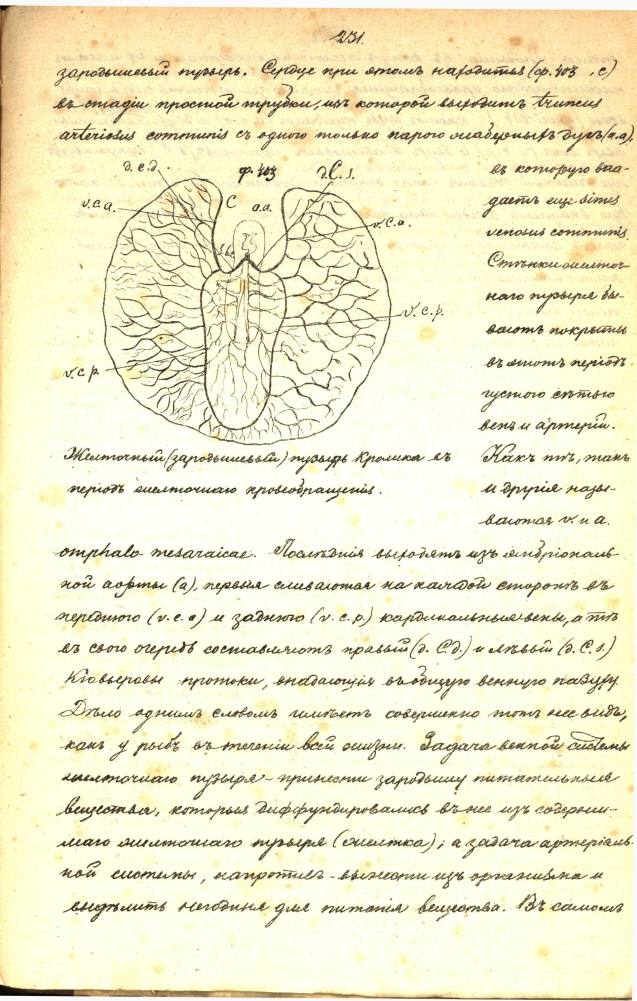 231.
зародышевый пузырь. Сердце при этомъ находится (ф. 403, с)
въ стадіи простой трубки, изъ которой выходитъ truncus
arteriosus communis съ одного только парого жаберныхъ дугъ (a.a),
d.c.d.
ф. 403
d.C.s.
v.c.a.
C
a.a.
v.c.a.
v.c.p.
v.c.p.
въ которую впа-
даетъ еще sinus
venosus communis.
Стѣнки желточ-
наго пузыря бы-
ваютъ покрыты
въ этотъ періодъ
густого сѣтью
венъ и артерій.
Желточный (зародышевый) пузырь Кролика въ
періодъ желточнаго кровообращенія.
Какъ тѣ, такъ
и другія назы-
ваются v. и a.
omphalo mesaraicae. Послѣднія выходятъ изъ эмбріональ-
ной аорты (a), первыя сливаются на каждой сторонѣ въ
переднюю (v.c.a) и заднюю (v.c.p.) кардинальныя вены, а тѣ
въ свого очередь составляютъ правый (d.C.d.) и лѣвый (d.C.s.)
Кювьеровы протоки, впадающія въ общую венную пазуху.
Дѣло однимъ словомъ имѣетъ совершенно тотъ же видъ,
какъ у рыбъ въ теченіи всей жизни. Задача венной системы
желточнаго пузыря - принести зародышу питательныя
вещества, которыя диффундировались въ нее изъ содержи-
маго желточнаго пузыря (желтка); а задача артеріаль-
ной системы, напротивъ - вынести изъ организма и
выдѣлить негодныя для питанія вещества. Въ самомъ